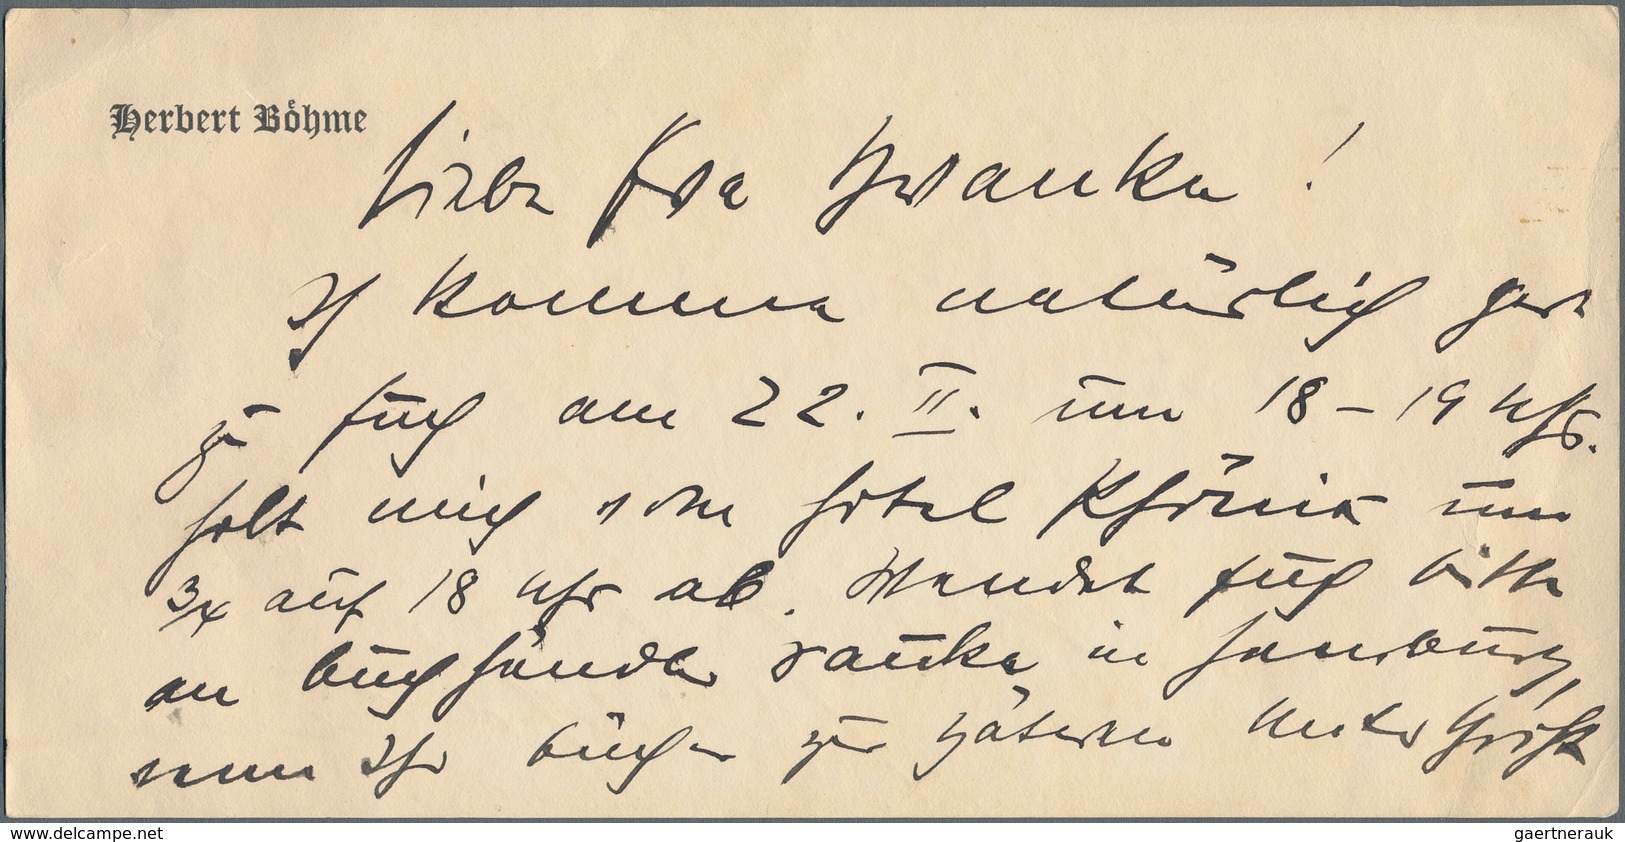 Herbert Böhme
Liebe Eva !
Ich komme natürlich gern
zu Euch am 22. II. um 18 – 19 Uhr.
holt mich vom Hotel um
3/4 auf 18 Uhr ab. Wendet Euch bitte
an Buchhändler in Hamburg,
wenn Ihr Bücher zur späteren Unterschrift
www.delcampe.net
gaertnerauk